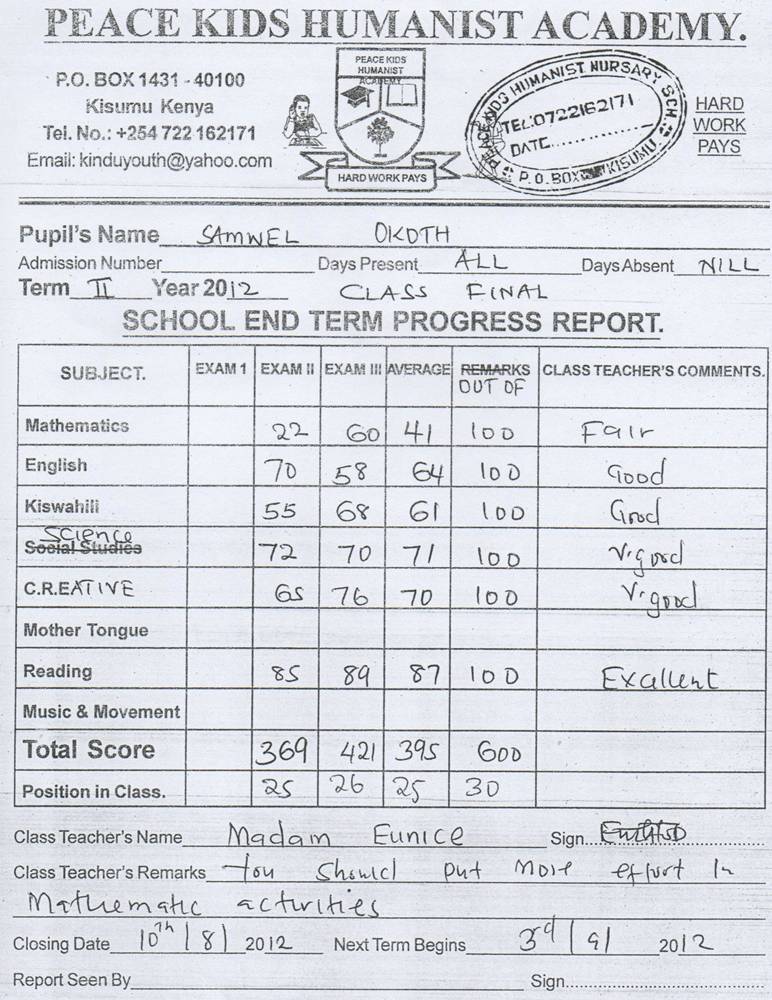 PEACE KIDS HUMANIST ACADEMY.
P.O. BOX 1431 - 40100
Kisumu Kenya
Tel. No.: +254 722 162171
Email: kinduyouth@yahoo.com
PEACE KIDS
HUMANIST
ACADEMY
HARD WORK PAYS
PEACE KIDS HUMANIST NURSARY SCH
TEL:0722162171
DATE..............
P.O. BOX KISUMU
HARD
WORK
PAYS
Pupil's Name SAMWEL OKOTH
Admission Number Days Present ALL Days Absent NILL
Term II Year 2012 CLASS FINAL
SCHOOL END TERM PROGRESS REPORT.
SUBJECT. EXAM 1 EXAM II EXAM III AVERAGE REMARKS OUT OF CLASS TEACHER'S COMMENTS.
Mathematics 22 60 41 100 Fair
English 70 58 64 100 Good
Kiswahili 55 68 61 100 Good
Science
Social Studies 72 70 71 100 V.good
C.R.EATIVE 65 76 70 100 V.good
Mother Tongue
Reading 85 89 87 100 Excellent
Music & Movement
Total Score 369 421 395 600
Position in Class. 25 26 25 30
Class Teacher's Name Madam Eunice Sign....
Class Teacher's Remarks You Should put more effort in
Mathematic activities
Closing Date 10th | 8 | 2012 Next Term Begins 3rd | 9 | 2012
Report Seen By Sign..............................